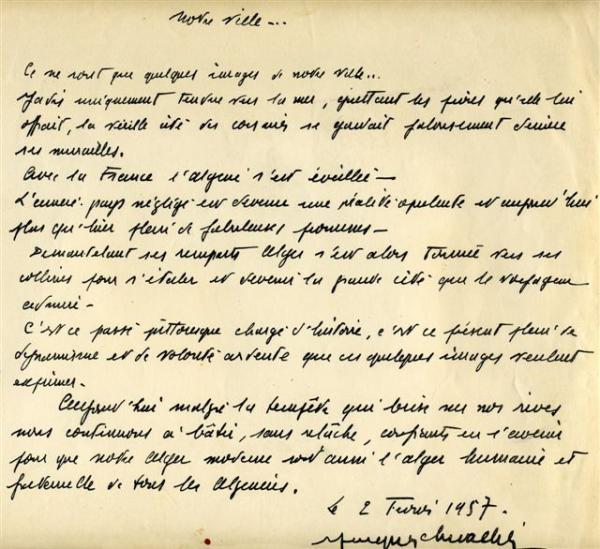 Notre ville...
Ce ne sont que quelques images de notre ville...
Jadis uniquement tendue vers la mer, guettant les proies qu'elle lui
offrait, la vieille cité des corsaires se gardait jalousement derrière
ses murailles.
Avec la France l'Algérie s'est éveillée -
L'ancien pays négligé est devenu une réalité opulente et aujourd'hui
plus qu'hier pleine de fabuleuses promesses -
Démantelant ses remparts Alger s'est alors tournée vers ses
collines pour s'étaler et devenir la grande cité que le voyageur
admire -
C'est ce passé pittoresque chargé d'histoire, c'est ce présent plein de
dynamisme et de volonté ardente que ces quelques images veulent
exprimer -
Aujourd'hui malgré la tempête qui brise sur nos rives
nous continuons à bâtir, sans relâche, confiants en l'avenir
pour que notre Alger moderne soit aussi l'Alger humaine et
fraternelle de tous les Algérois.
le 2 1957.
Jacques Chevallier